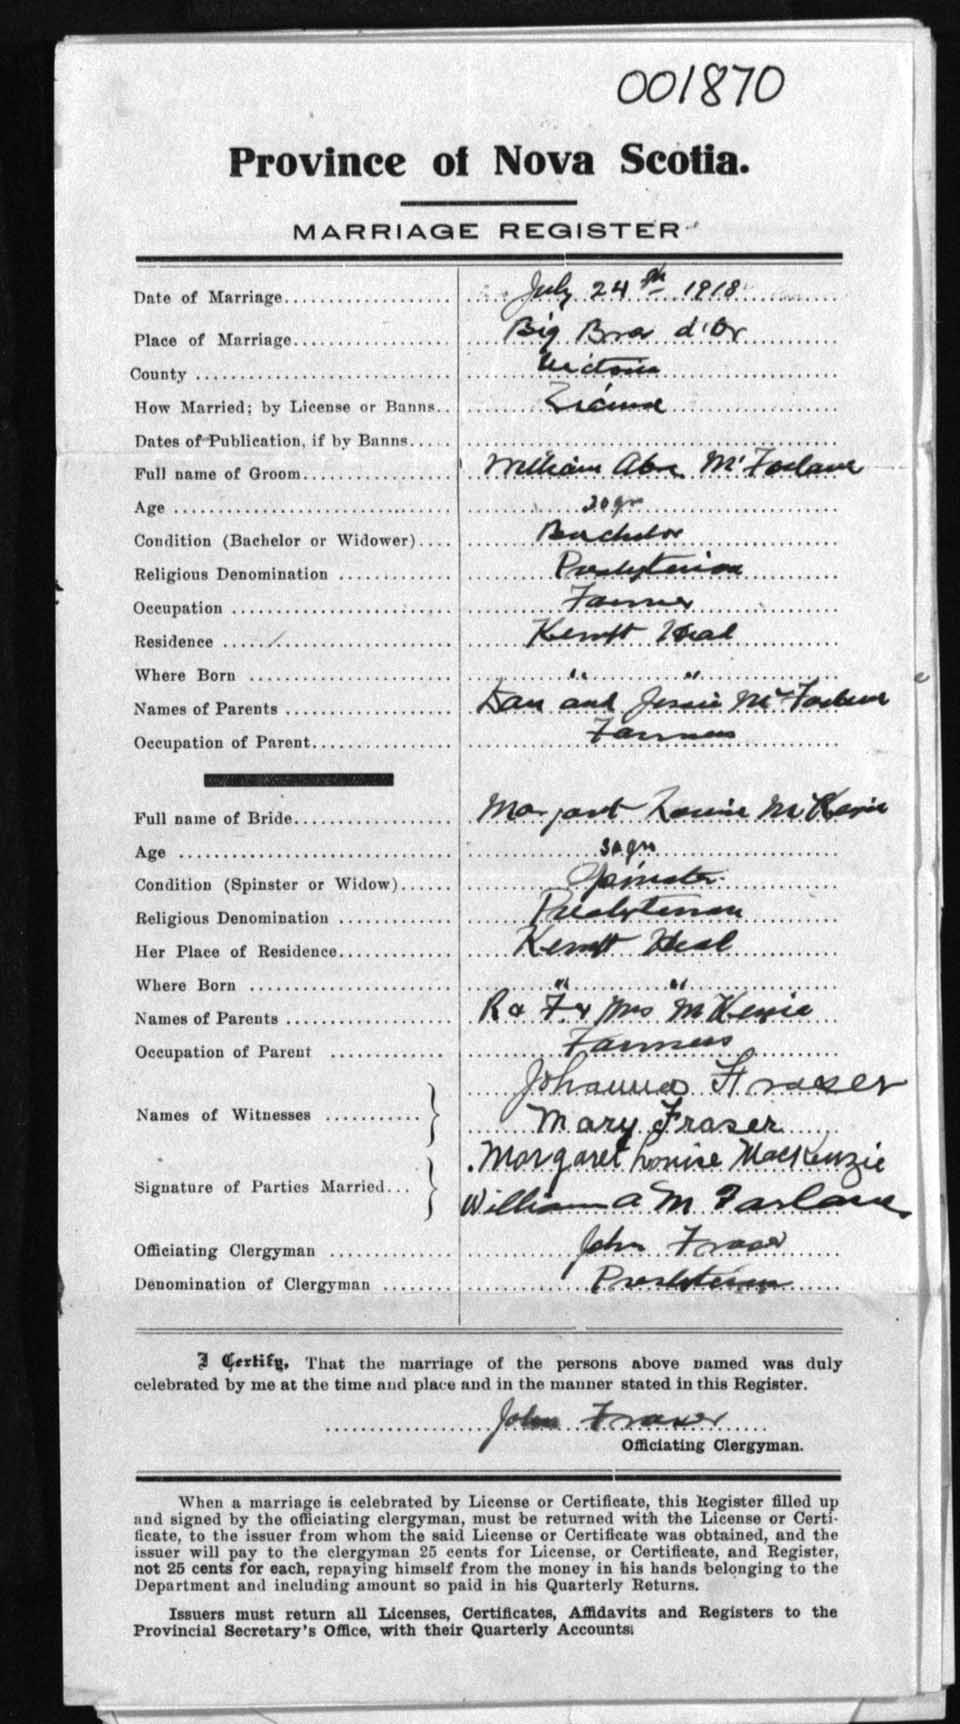 001870
Province of Nova Scotia.
MARRIAGE REGISTER
Date of Marriage.................. July 24th 1918
Place of Marriage................. Big Bras d'Or
County .................. Victoria
How Married; by License or Banns.. License
Dates of Publication, if by Banns.....
Full name of Groom................ William M'Farlane
Age .................. 30 yrs
Condition (Bachelor or Widower).... Bachelor
Religious Denomination ............ Presbyterian
Occupation .................. Farmer
Residence .................. Kempt Head
Where Born .................. " "
Names of Parents .................. Dan and Jessie McFarlane
Occupation of Parent.............. Farmers
Full name of Bride................ Margaret Louise McKenzie
Age .................. 30 yrs
Condition (Spinster or Widow)...... Spinster
Religious Denomination ............ Presbyterian
Her Place of Residence............ Kempt Head
Where Born .................. " "
Names of Parents .................. Mrs McKenzie
Occupation of Parent ............ Farmers
Names of Witnesses ............ Johanna Fraser
Mary Fraser
Signature of Parties Married... Margaret Louise MacKenzie
William A McFarlane
Officiating Clergyman ............ John Fraser
Denomination of Clergyman ........ Presbyterian
I Certify, That the marriage of the persons above named was duly
celebrated by me at the time and place and in the manner stated in this Register.
John Fraser
Officiating Clergyman.
When a marriage is celebrated by License or Certificate, this Register filled up
and signed by the officiating clergyman, must be returned with the License or Certi-
ficate, to the issuer from whom the said License or Certificate was obtained, and the
issuer will pay to the clergyman 25 cents for License, or Certificate, and Register,
not 25 cents for each, repaying himself from the money in his hands belonging to the
Department and including amount so paid in his Quarterly Returns.
Issuers must return all Licenses, Certificates, Affidavits and Registers to the
Provincial Secretary's Office, with their Quarterly Accounts.